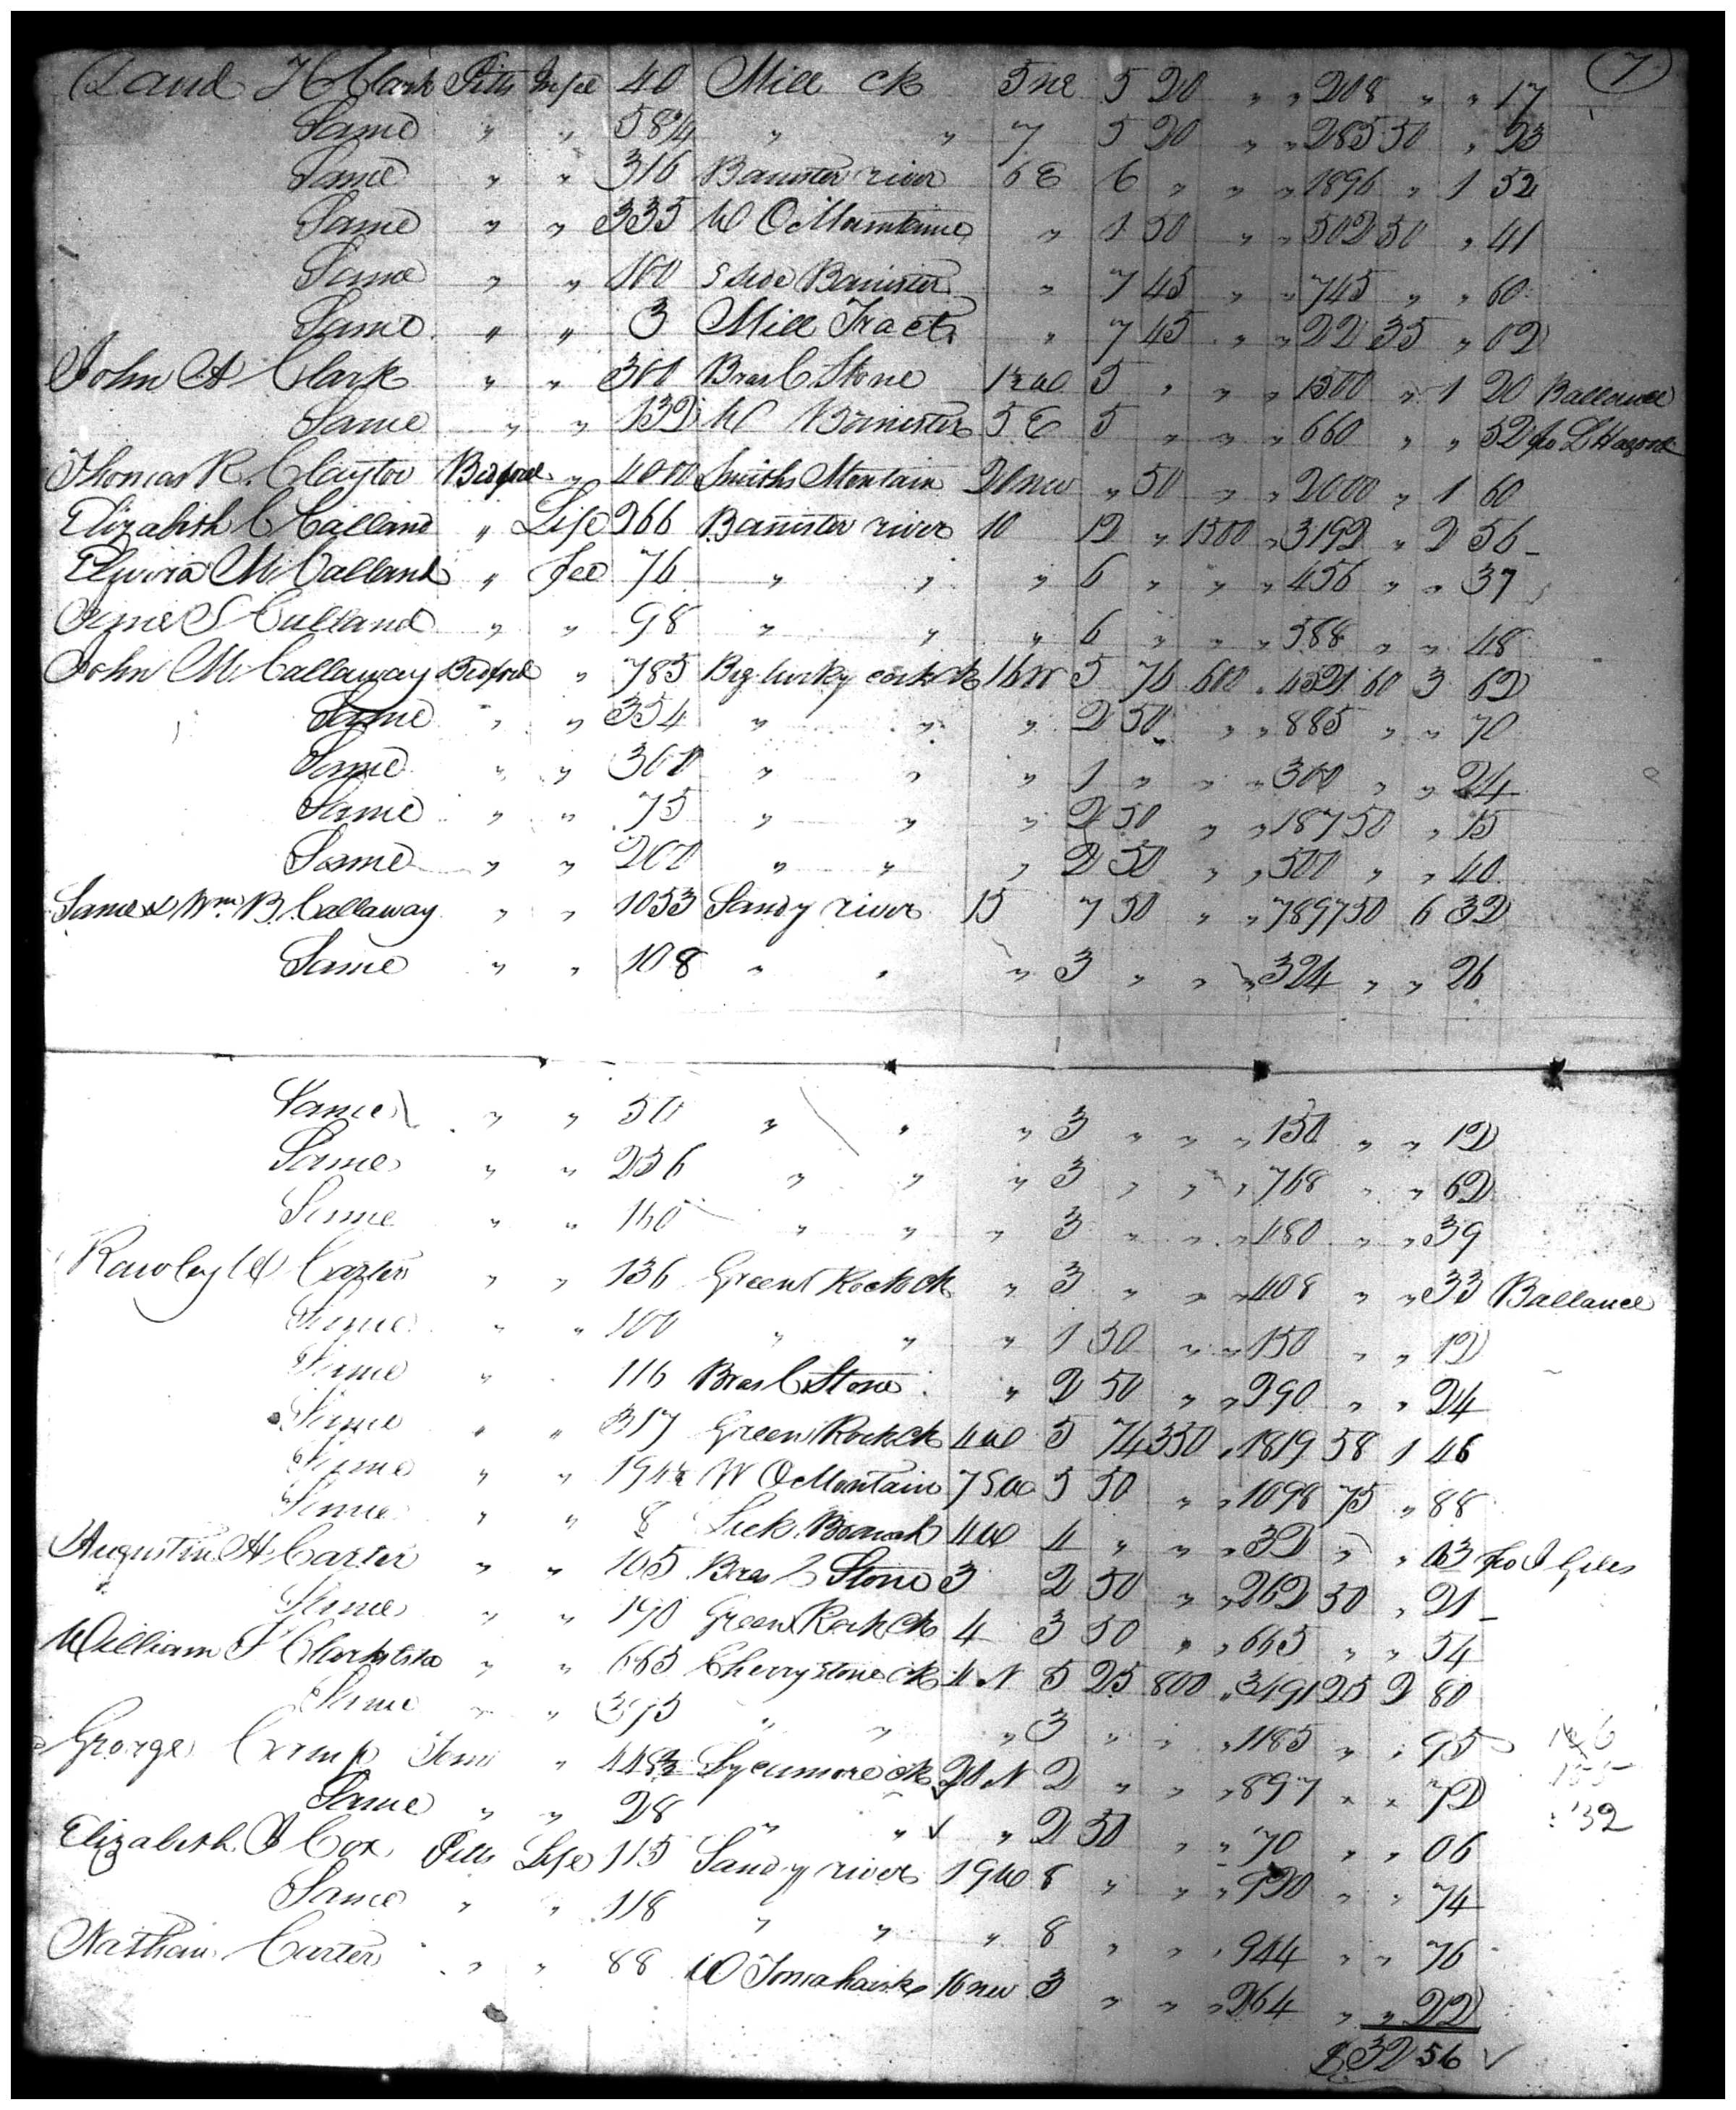 7
Land H Clark Pitts Infee 40 Mill ck 5 NE 5 20 " " 208 " " 17
Same " " 58¾ " " 7 5 20 " " 285 50 " 23
Same " " 316 Banister river 6 E 6 " " " 1896 " 1 52
Same " " 335 W O Mountains " 1 50 " " 502 50 " 41
Same " " 100 S side Banister " 7 45 " " 745 " " 60
Same " " 3 Mill Tract " 7 45 " " 22 35 " 02
John A Clark " " 300 Bras C Stone 5 " " " 1500 " 1 20 Ballance
Same " " 132 W Banister 5 E 5 " " " 660 " " 52
Thomas R. Claytor Bedford " 4000 Smiths Montain 20 NW " 50 " " 2000 " 1 60
Elizabeth C Calland " Life 266 Banister river 10 12 " 1500 " 3192 " 2 56
Elvira M Calland " fee 76 " " " 6 " " " 456 " " 37
S Calland " " 98 " " " 6 " " " 588 " " 48
John M Callaway Bedford " 785 Big turky cock ck 16 W 5 76 600 " 4521 60 3 62
Same " " 354 " " " 2 50 " " 885 " " 70
Same " " 300 " " " 1 " " " 300 " " 24
Same " " 75 " " " 2 50 " " 187 50 " 15
Same " " 200 " " " 2 50 " " 500 " " 40
Same & Wm B Callaway " " 1053 Sandy river 15 7 50 " " 7897 50 6 32
Same " " 108 " " " 3 " " " 324 " " 26
Same " " 50 " " " 3 " " " 150 " " 12
Same " " 256 " " " 3 " " " 768 " " 62
Same " " 160 " " " 3 " " " 480 " " 39
Rawley W Carter " " 136 Green Rock ck " 3 " " " 408 " " 33 Ballance
Same " " 100 " " " 1 50 " " 150 " " 12
Same " 116 Bras C Stone " 2 50 " " 290 " " 24
Same " " 317 Green Rock ck 4 W 5 74 350 " 1819 58 1 46
Same " " W O Montain 7 SW 5 50 " " 1098 75 " 88
Same " " 8 Lick Branch 4 W 4 " " " 32 " " 03 fro J Giles
Augustin H Carter " " 105 Bras C Stone 3 2 50 " " 262 50 " 21
Same " " 190 Green Rock ck 4 3 50 " " 665 " " 54
William " " 665 Cherrystone ck 4 N 5 25 800 " 3491 25 2 80
Same " " 395 " " " 3 " " " 1185 " " 95
George Camp " 448½ Sycamore ck 20 N 2 " " " 897 " " 72
Same " " 28 " " " 2 50 " " 70 " " 06
Elizabeth Cox Pitts Life 115 Sandy river 19 W 8 " " " 920 " " 74
Same " " 118 " " " 8 " " " 944 " " 76
Nathan Carter " " 88 W Tomahawk 16 NW 3 " " " 264 " " 22
$ 32 56